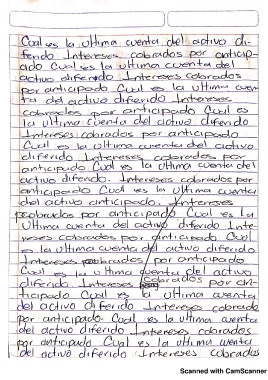 Cual es la ultima cuenta del activo di-
ferido Intereses cobrados por anticip-
ado Cual es la ultima cuenta del
activo diferido Intereses cobrados
por anticipado Cual es la ultima cuen-
ta del activo diferido Intereses
cobrados por anticipado Cual es
la ultima cuenta del activo diferido
Intereses cobrados por anticipado
Cual es la ultima cuenta del activo
diferido Intereses cobrados por
anticipado Cual es la ultima cuenta del
activo diferido. Intereses cobrados por
anticipado Cual es la ultima cuenta
del activo anticipado. Intereses
cobrados por anticipado Cual es la
ultima cuenta del activo diferido Inte-
reses cobrados por anticipado Cual
es la ultima cuenta del activo diferido
Intereses cobrados por anticipado
Cual es la ultima cuenta del activo
diferido Intereses cobrados por an-
ticipado Cual es la ultima cuenta
del activo diferido Intereses cobrados
por anticipado Cual es la ultima cuenta
del activo diferido Intereses cobrados
por anticipado Cual es la ultima cuenta
del activo diferido Intereses cobrados
Scanned with CamScanner